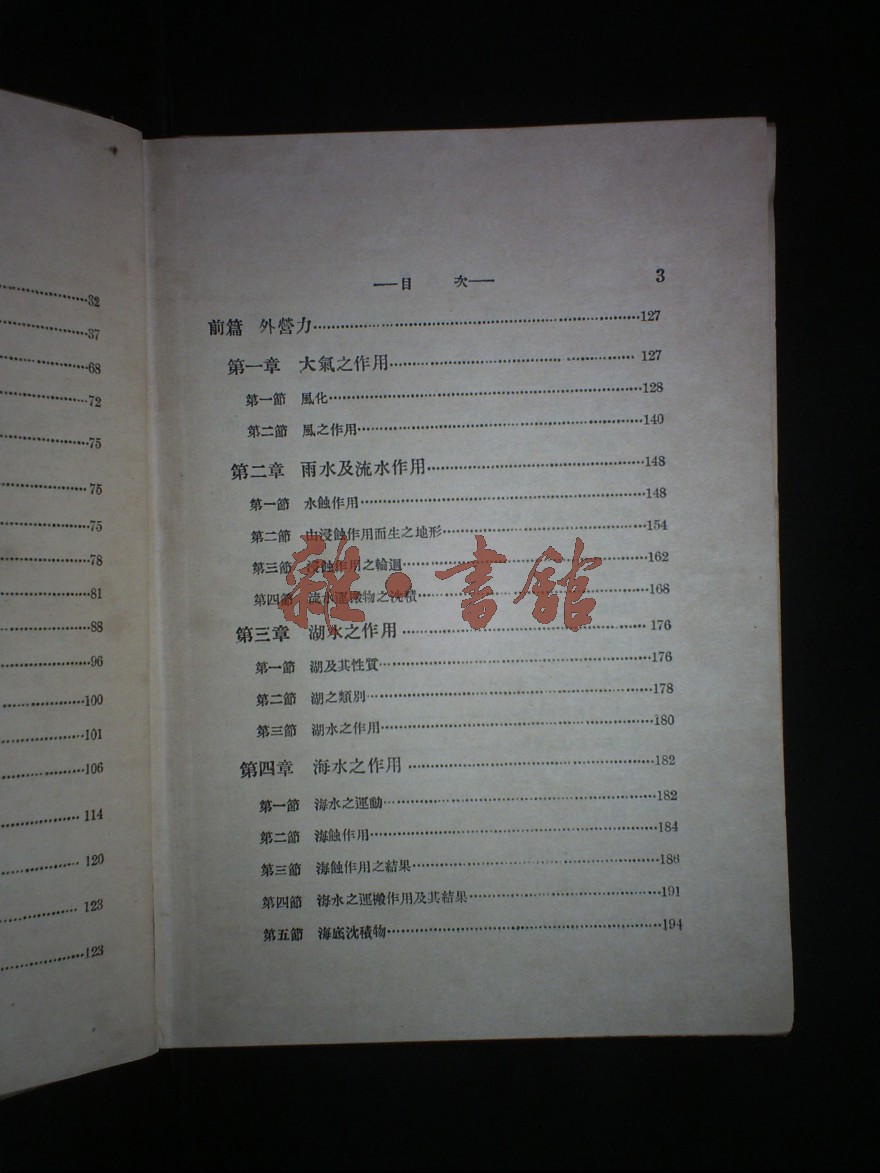 32
37
68
72
75
75
75
78
81
88
96
100
101
106
114
120
123
123
—目 次— 3
前篇 外營力 127
第一章 大氣之作用 127
第一節 風化 128
第二節 風之作用 140
第二章 雨水及流水作用 148
第一節 水蝕作用 148
第二節 由浸蝕作用而生之地形 154
第三節 浸蝕作用之輪迴 162
第四節 流水運搬物之沈積 168
雜·書館
第三章 湖水之作用 176
第一節 湖及其性質 176
第二節 湖之類別 178
第三節 湖水之作用 180
第四章 海水之作用 182
第一節 海水之運動 182
第二節 海蝕作用 184
第三節 海蝕作用之結果 186
第四節 海水之運搬作用及其結果 191
第五節 海底沈積物 194